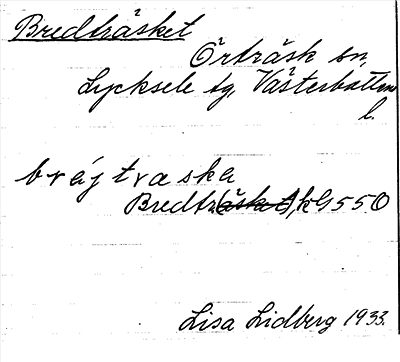 Bredträsket
Örträsk sn,
Lycksele tg, Västerbottens
l.
bräjtraska
Bredtr(äsket), kG550
Lisa Lidberg 1933.